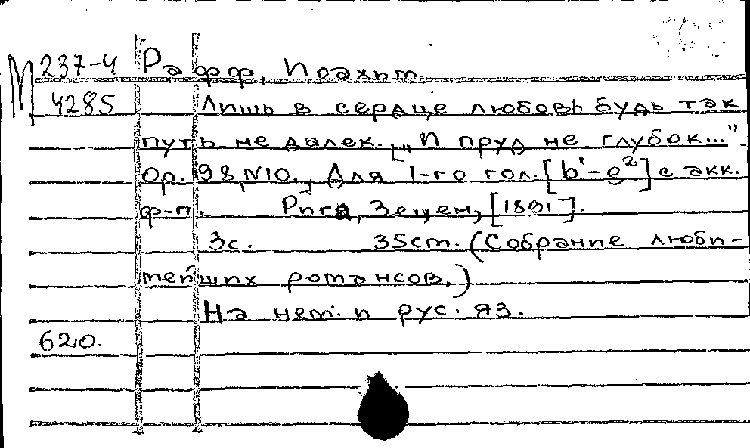 М 237-4 Рафф, Иоахим.
4285 Лишь в сердце любовь будь так
путь не далек. [„И пруд не глубок..."
Op. 98, N10.], Для 1-го гол. [b'-g²] с акк.
ф-п. Рига, Зецен, [1891].
3с. 35cm. (Собрание люби-
мейших романсов.)
На нем. и рус. яз.
620.